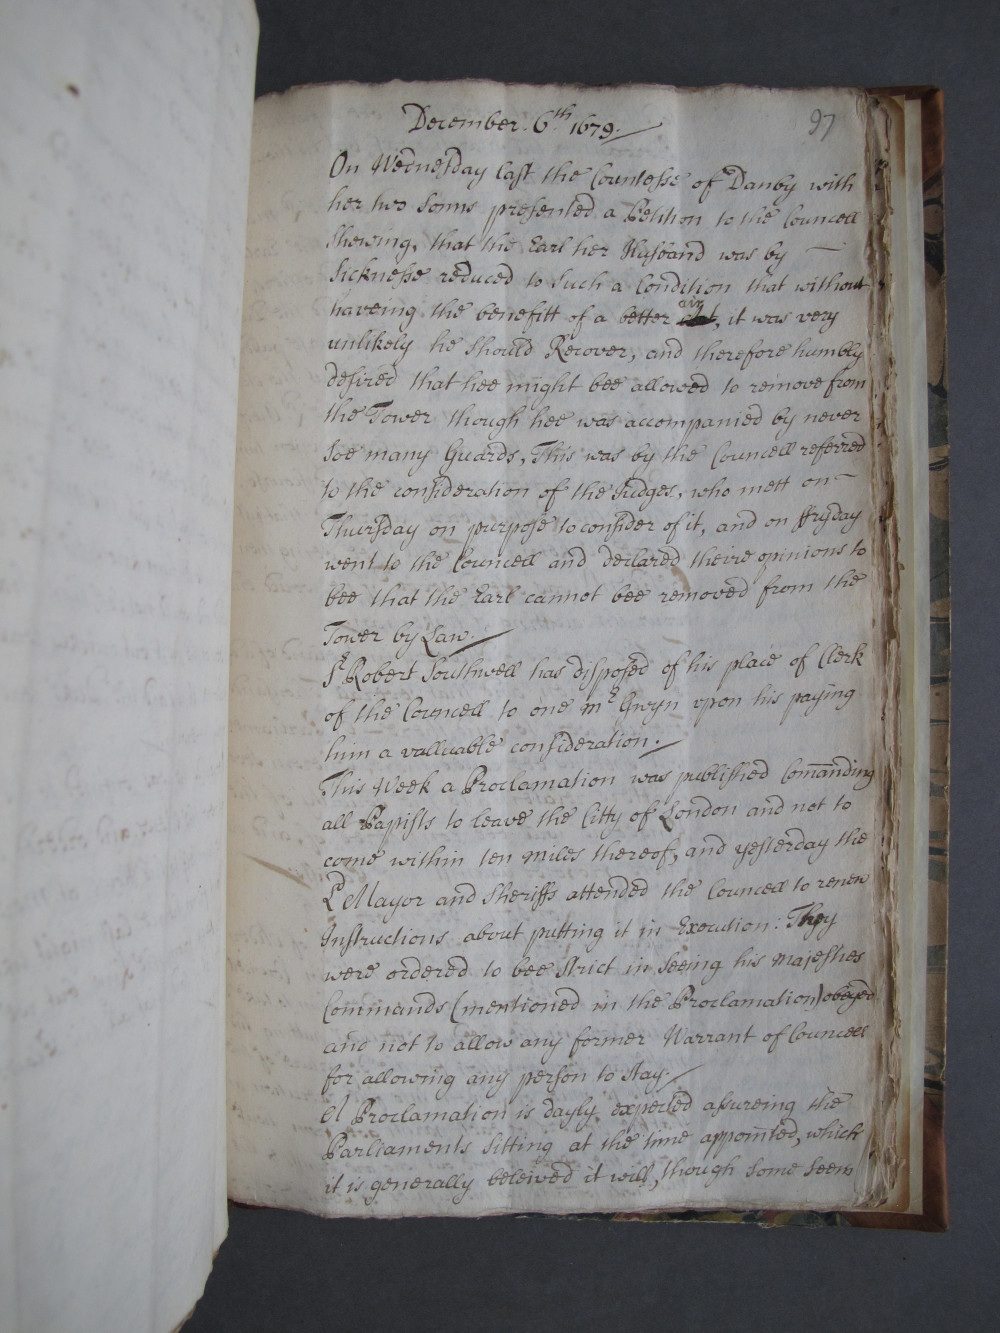 97
December. 6th. 1679.
On Wednesday last the Countesse of Danby with
her two sonns presented a Petition to the Councell
shewing, that the Earl her Husband was by
sicknesse reduced to such a Condition that without
haveing the benefitt of a better air, it was very
unlikely he should Recover, and therefore humbly
desired that hee might bee allowed to remove from
the Tower though hee was accompanied by never
soe many Guards, This was by the Councell referred
to the consideration of the Judges, who mett on
Thursday on purpose to consider of it, and on ffryday
went to the Councell and declared theire opinions to
bee that the Earl cannot bee removed from the
Tower by Law.
Sr Robert Southwell has disposed of his place of Clerk
of the Councell to one mr Gwyn vpon his paying
him a valluable consideration.
This Week a Proclamation was published Comanding
all Papists to leave the Citty of London and not to
come within ten miles thereof, and yesterday the
Ld Mayor and Sheriffs attended the Councell to renew
Instructions about putting it in Execution: They
were ordered to bee strict in seeing his majesties
Commands (mentioned in the Proclamation) obeyed
and not to allow any former Warrant of Councell
for allowing any person to stay.
A Proclamation is dayly expected assureing the
Parliaments sitting at the time appointed, which
it is generally beleived it will, though some seem